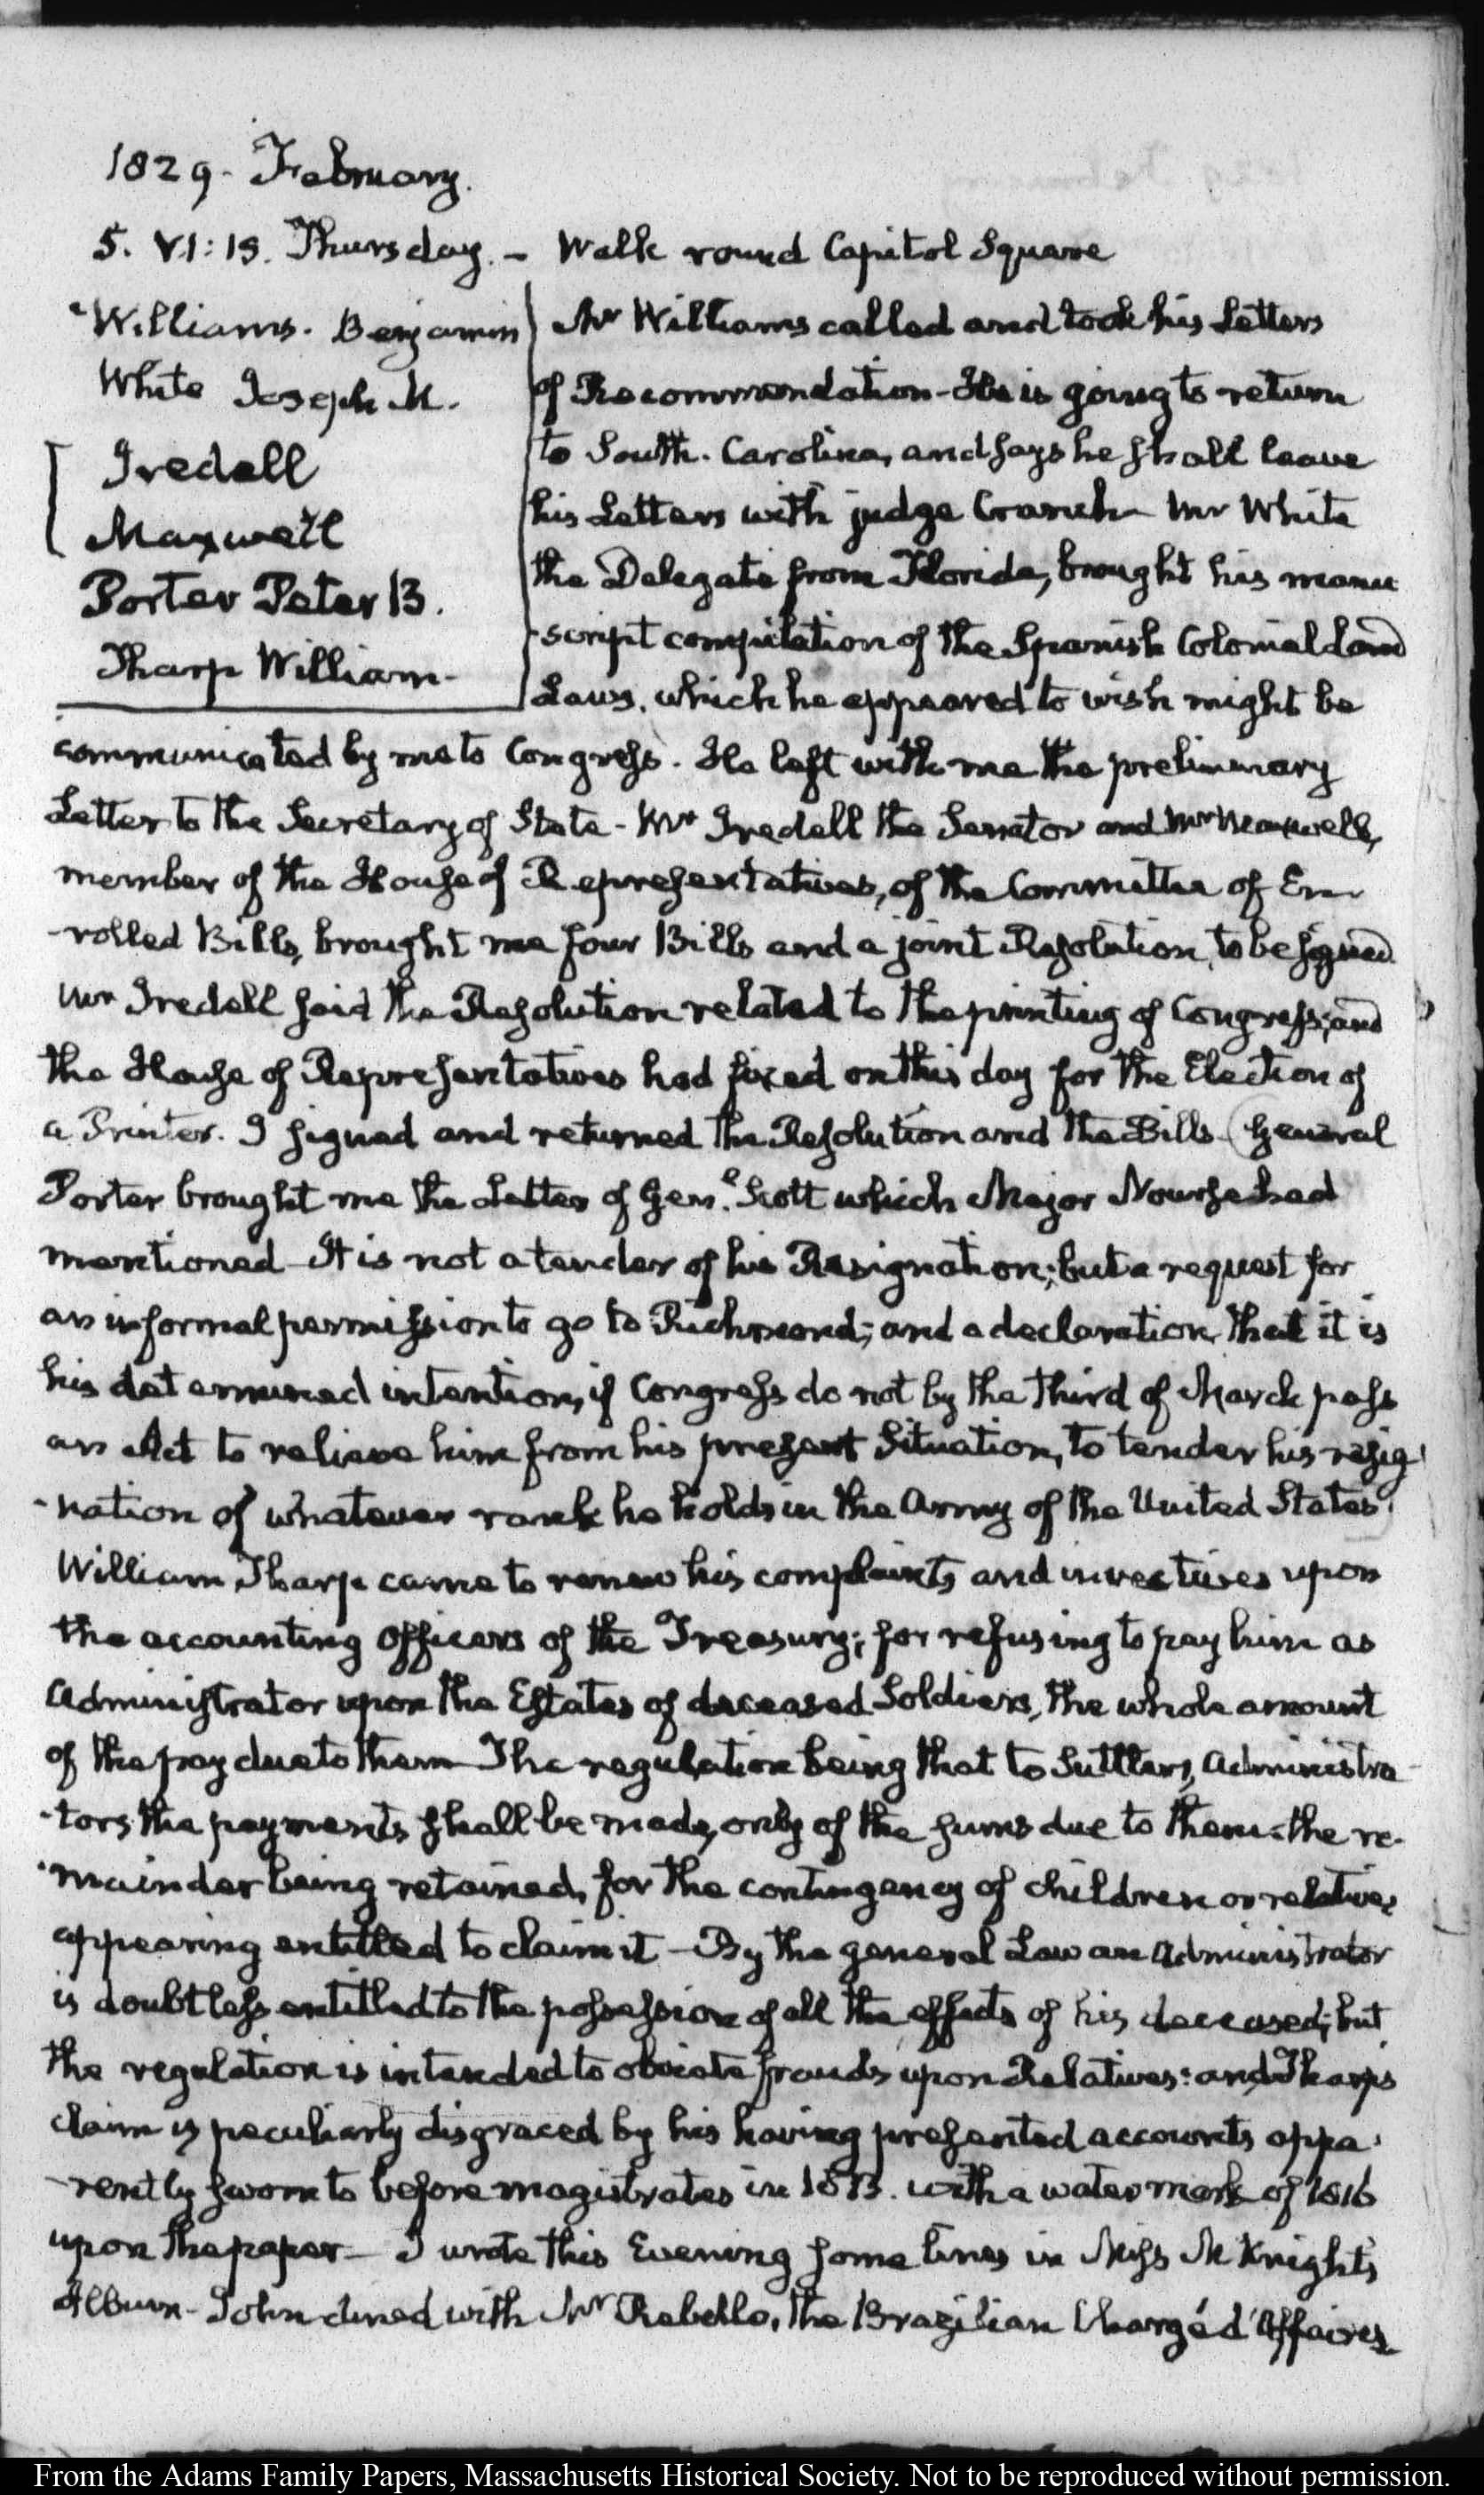 1829. February.
5. VI:15. Thursday. – Walk round Capitol Square
Williams. Benjamin
White Joseph M.
Iredell
Maxwell
Porter Peter B.
Tharp William
Mr Williams called and took his Letters
of Recommendation – He is going to return
to South. Carolina, and says he shall leave
his Letters with judge Cranch – Mr White
the Delegate from Florida, brought his manu
-script compilation of the Spanish Colonial Land
Laws, which he appeared to wish might be
communicated by me to Congress. He left with me the preliminary
Letter to the Secretary of State – Mr Iredell the Senator and Mr Maxwell,
member of the House of Representatives, of the Committee of En
-rolled Bills, brought me four Bills and a joint Resolution, to be signed
Mr Iredell said the Resolution related to the printing of Congress; and
the House of Representatives had fixed on this day for the Election of
a Printer. I signed and returned the Resolution and the Bills – General
Porter brought me the Letter of Genl. Scott which Major Nourse had
mentioned – It is not a tender of his Resignation; but a request for
an informal permission to go to Richmond; and a declaration that it is
his determined intention, if Congress do not by the third of March pass
an Act to relieve him from his present Situation, to tender his resig
-nation of whatever rank he holds in the Army of the United States.
William Tharp came to renew his complaints and invectives upon
the accounting Officers of the Treasury; for refusing to pay him as
Administrator upon the Estates of deceased Soldiers, the whole amount
of the pay due to them – The regulation being that to Suttlers, Administra
-tors the payments shall be made, only of the sums due to them: the re-
-mainder being retained, for the contingency of children or relatives
appearing entitled to claim it – By the general Law an Administrator
is doubtless entitled to the possession of all the effects of his deceased; but
the regulation is intended to obviate frauds upon Relatives: and Tharp's
claim is peculiarly disgraced by his having presented accounts appa
-rently sworn to before magistrates in 1813. with a water mark of 1816
upon the paper – I wrote this Evening some lines in Miss McKnight's
Album – John dined with Mr Rebello, the Brazilian Chargé d'Affaires
From the Adams Family Papers, Massachusetts Historical Society. Not to be reproduced without permission.